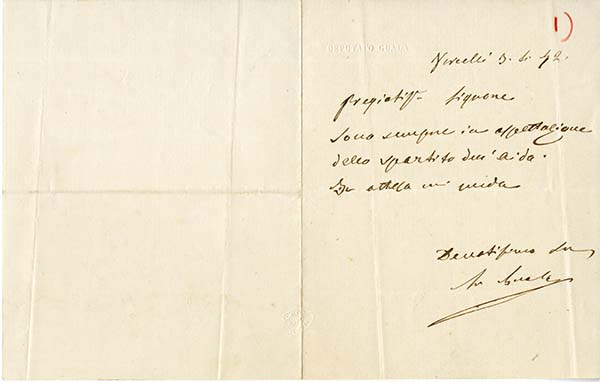 1)
DEPUTATO GUALA
Vercelli 3.
Pregiatiss. Signore
Sono sempre in aspettazione
dello spartito dell'Aida.
In attesa mi creda
Devotissimo Suo
Guala